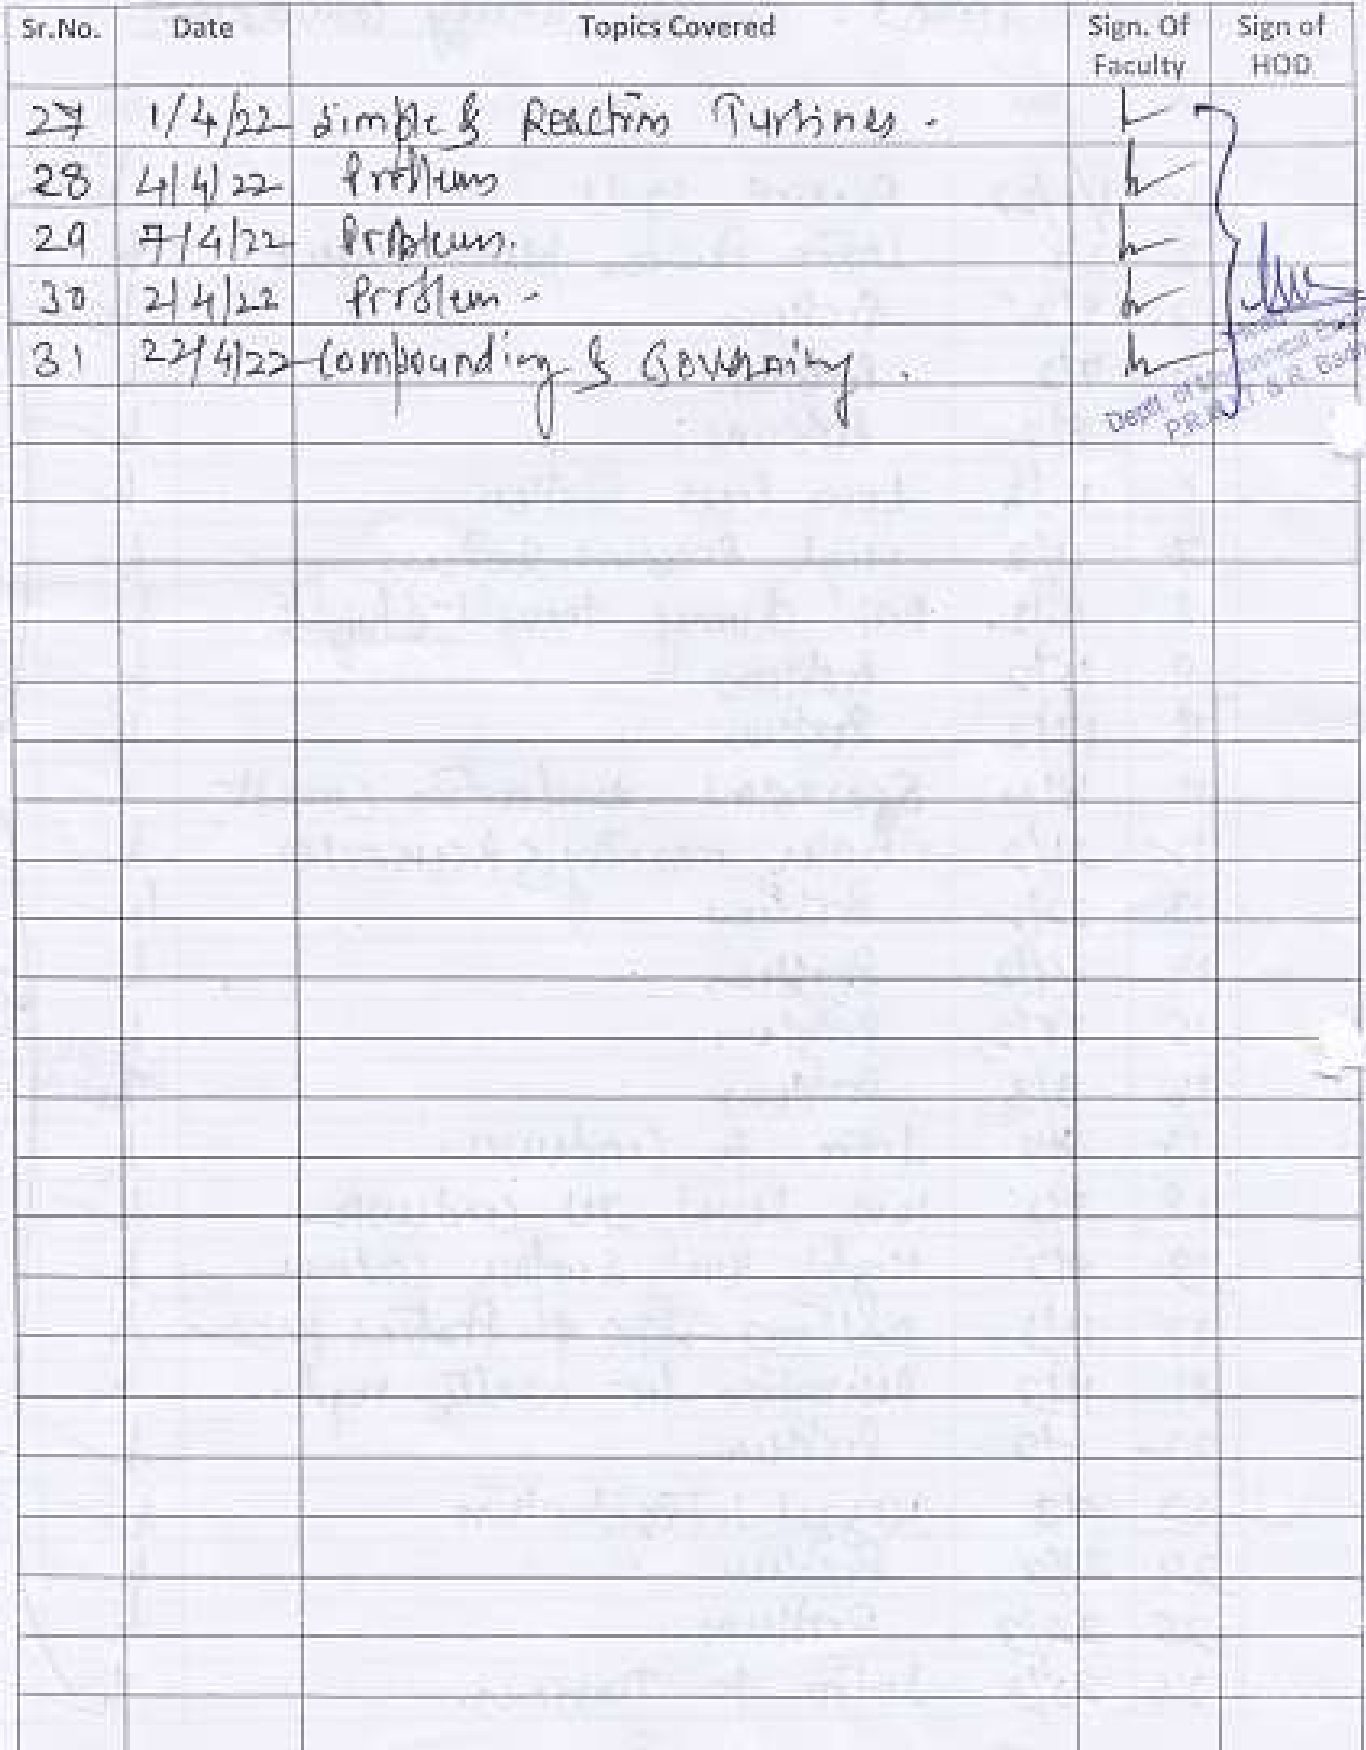 Sr.No. Date Topics Covered Sign. Of Faculty Sign of HOD
27 1/4/22 Simple & Reaction Turbines.
28 4/4/22 Problems
29 7/4/22 Problems.
30 2/4/22 Problem -
31 22/4/22 Compounding & Governing.
Deptt. of Mechanical
P.R.M.I.T. & R. Badnera